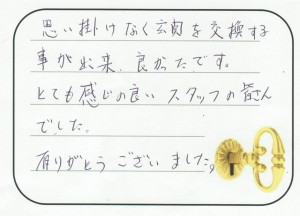 思い掛けなく玄関を交換する
事が出来、良かったです。
とても感じの良いスタッフの皆さん
でした。
有りがとうございました。